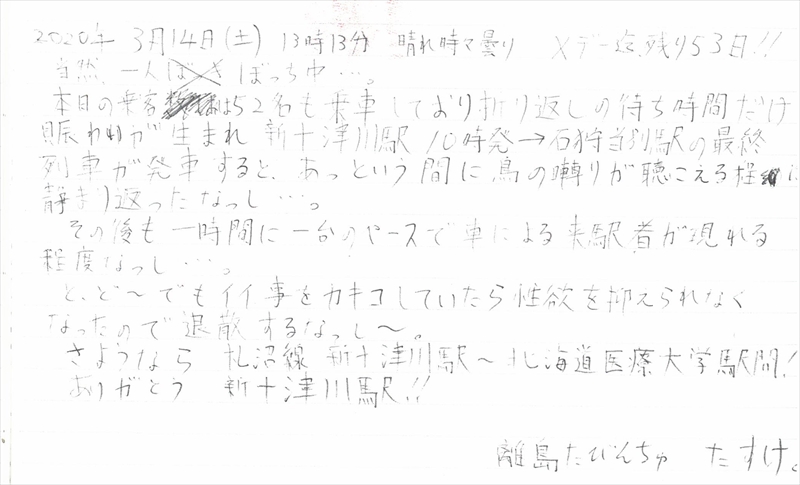 2020年 3月14日(土) 13時13分 晴れ時々曇り Xデー迄残り53日!!
当然、一人ぼっち中…。
本日の乗客は52名も乗車しており折り返しの待ち時間だけ
賑わいが生まれ 新十津川駅 10時発→石狩当別駅の最終
列車が発車すると、あっという間に鳥の囀りが聴こえる程に
静まり返ったなっし…。
その後も一時間に一台のペースで車による来駅者が現れる
程度なっし…。
と、ど〜でもイイ事をカキコしていたら性欲を抑えられなく
なったので退散するなっし〜。
さようなら 札沼線 新十津川駅〜北海道医療大学駅間!
ありがとう 新十津川駅!!
離島たびんちゅ たすけ。